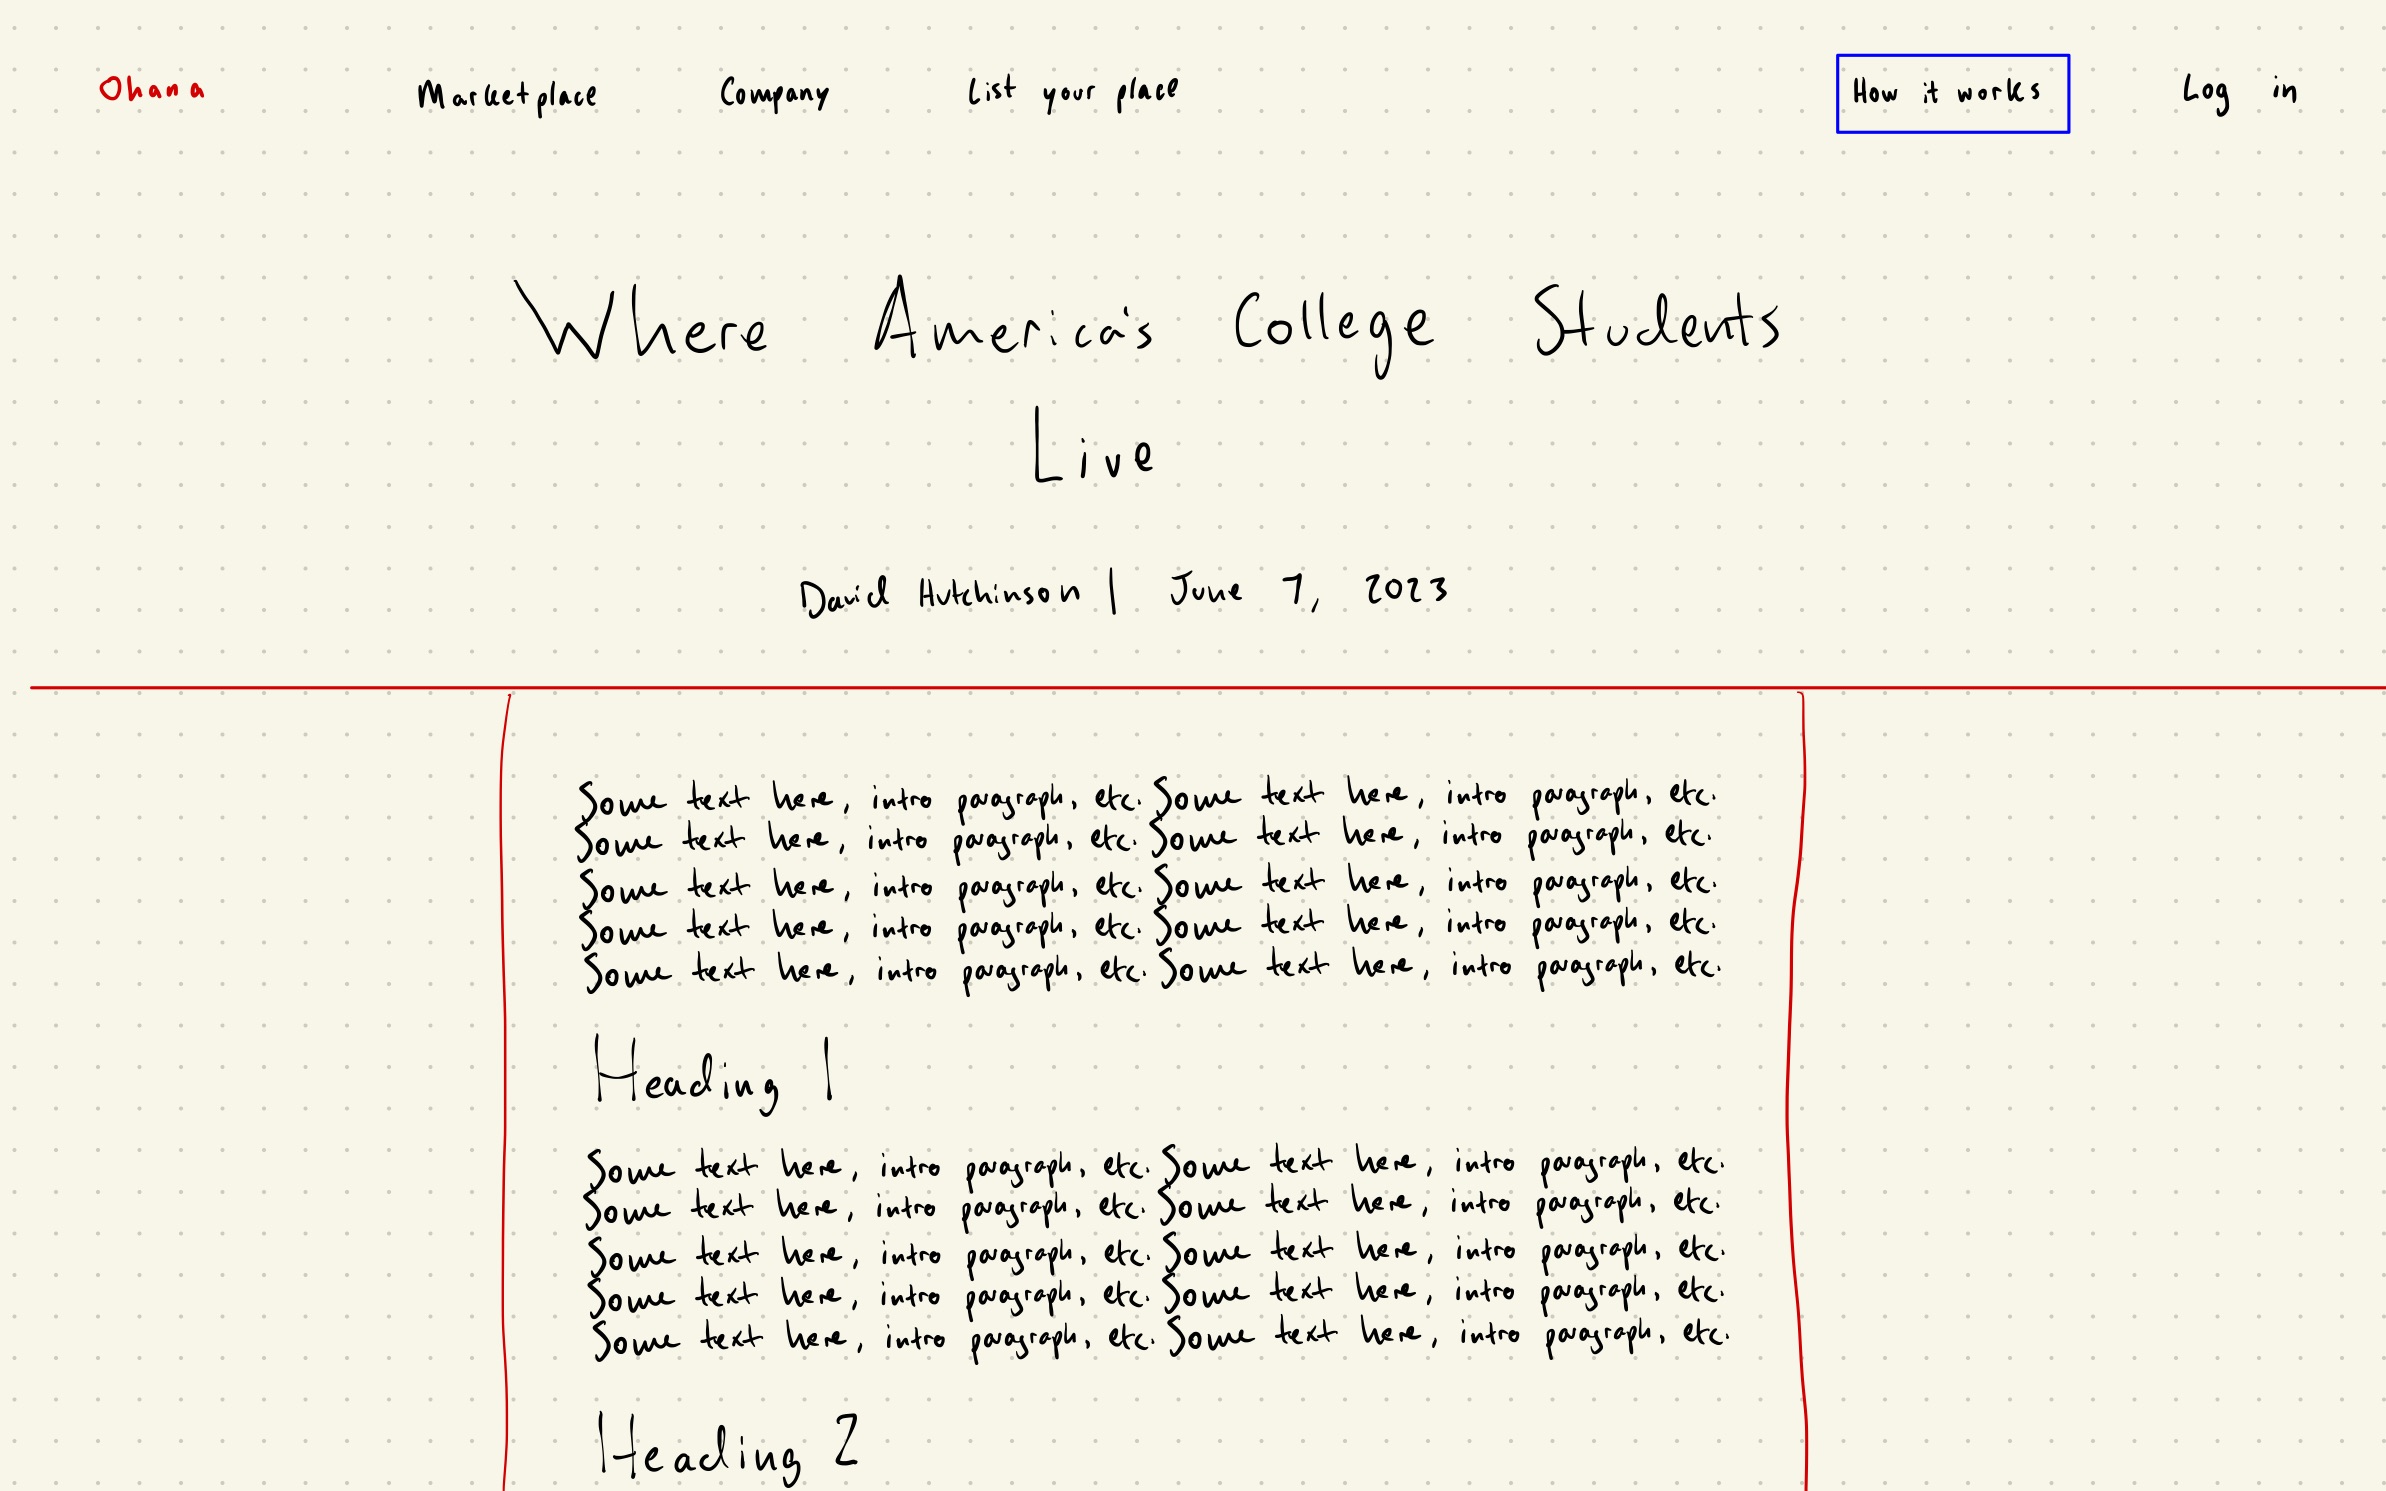 Ohana Marketplace Company List your place How it works Log in
Where America's College Students
Live
David Hutchinson | June 7, 2023
Some text here, intro paragraph, etc. Some text here, intro paragraph, etc.
Some text here, intro paragraph, etc. Some text here, intro paragraph, etc.
Some text here, intro paragraph, etc. Some text here, intro paragraph, etc.
Some text here, intro paragraph, etc. Some text here, intro paragraph, etc.
Some text here, intro paragraph, etc. Some text here, intro paragraph, etc.
Heading 1
Some text here, intro paragraph, etc. Some text here, intro paragraph, etc.
Some text here, intro paragraph, etc. Some text here, intro paragraph, etc.
Some text here, intro paragraph, etc. Some text here, intro paragraph, etc.
Some text here, intro paragraph, etc. Some text here, intro paragraph, etc.
Some text here, intro paragraph, etc. Some text here, intro paragraph, etc.
Heading 2